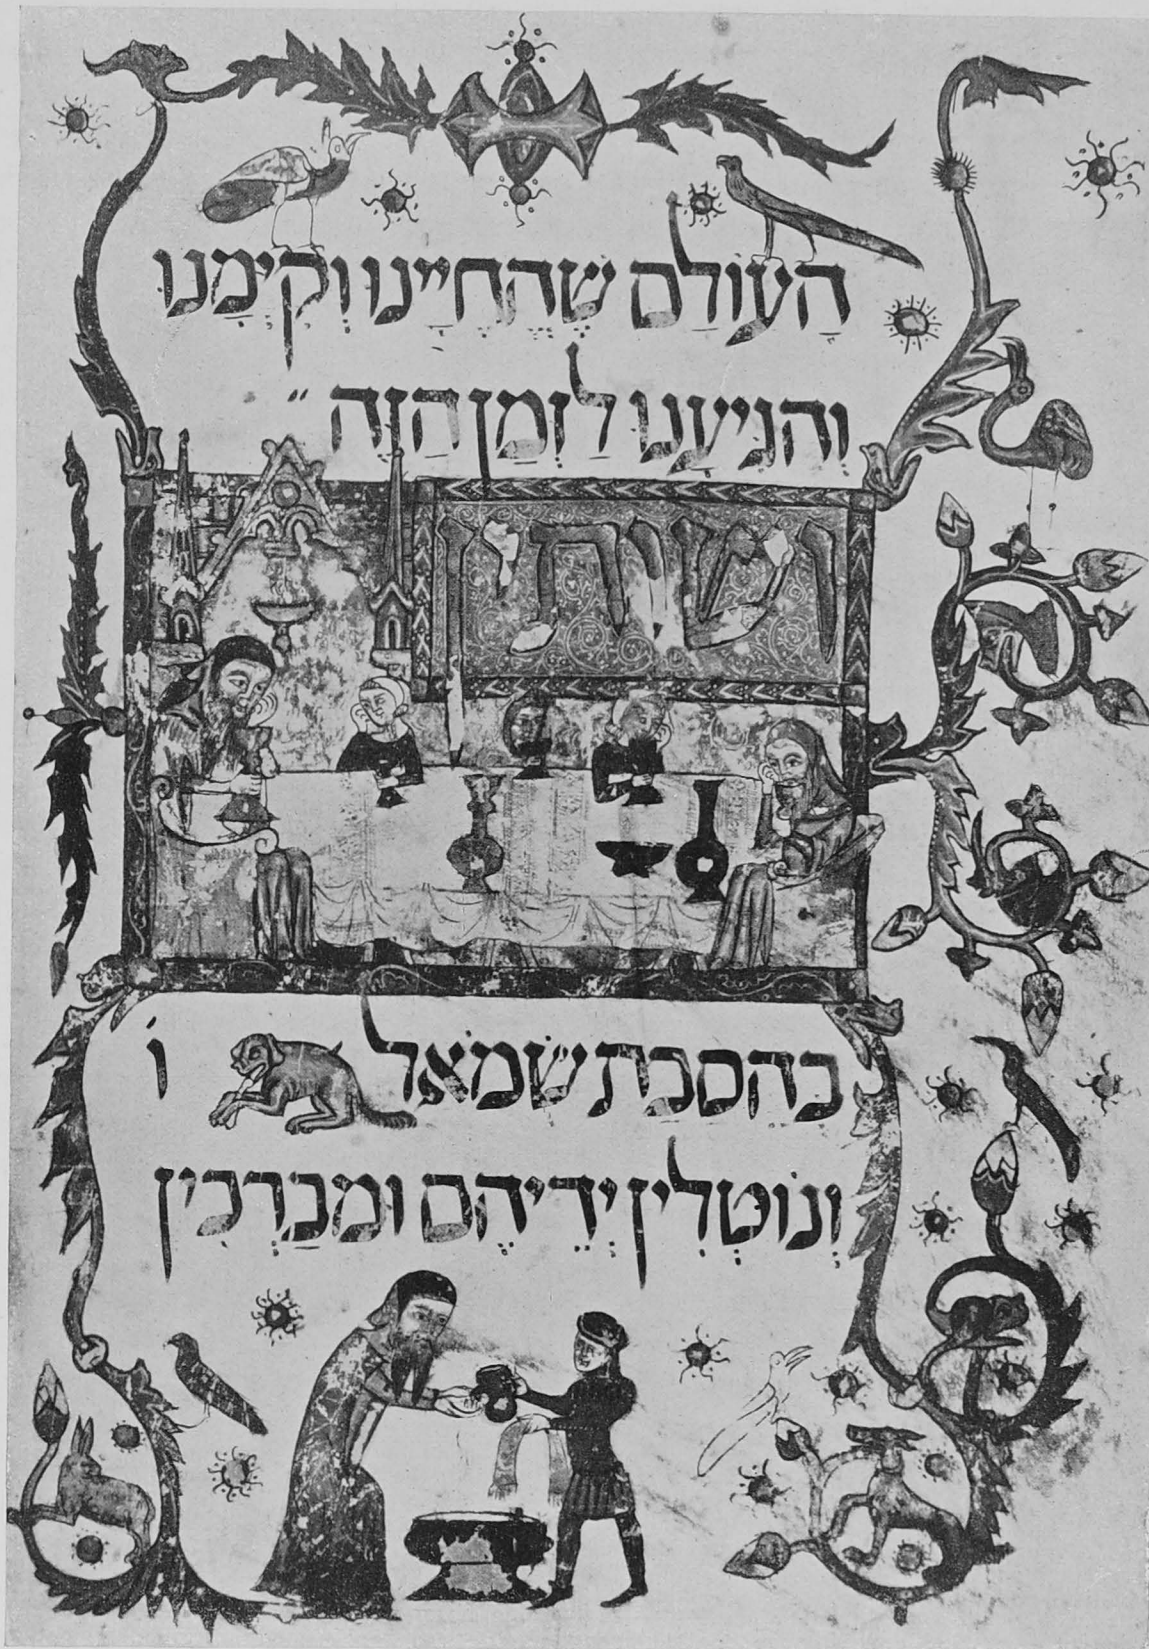 הָעוֹלָם שֶׁהֶחֱיָינוּ וְקִיְימָנוּ
וְהִגִּיעָנוּ לַזְּמַן הַזֶּה ״
ושותין
בְּהַסִבַּת שְׂמֹאל וֹ
וְנוֹטְלִין יְדֵיהֶם וּמְבַרְכִין